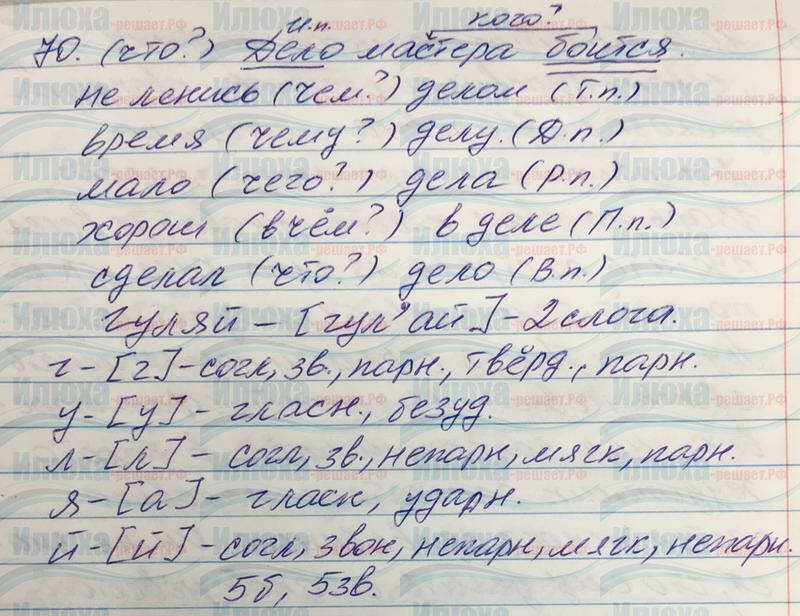 И.п. кого?
70. (что?) Дело мастера боится.
не ленись (чем?) делом (Т.п.)
время (чему?) делу. (Д.п.)
мало (чего?) дела (Р.п.)
хорош (в чём?) в деле (П.п.)
сделал (что?) дело (В.п.)
Гуляй – [гул'ай] – 2 слога.
г – [г] – согл, зв., парн., твёрд., парн.
у – [у] – гласн., безуд.
л – [л] – согл, зв., непарн, мягк, парн.
я – [а] – гласн, ударн.
й – [й] – согл, звон, непарн, мягк, непарн.
5б, 5зв.
Илюха-решает.РФ